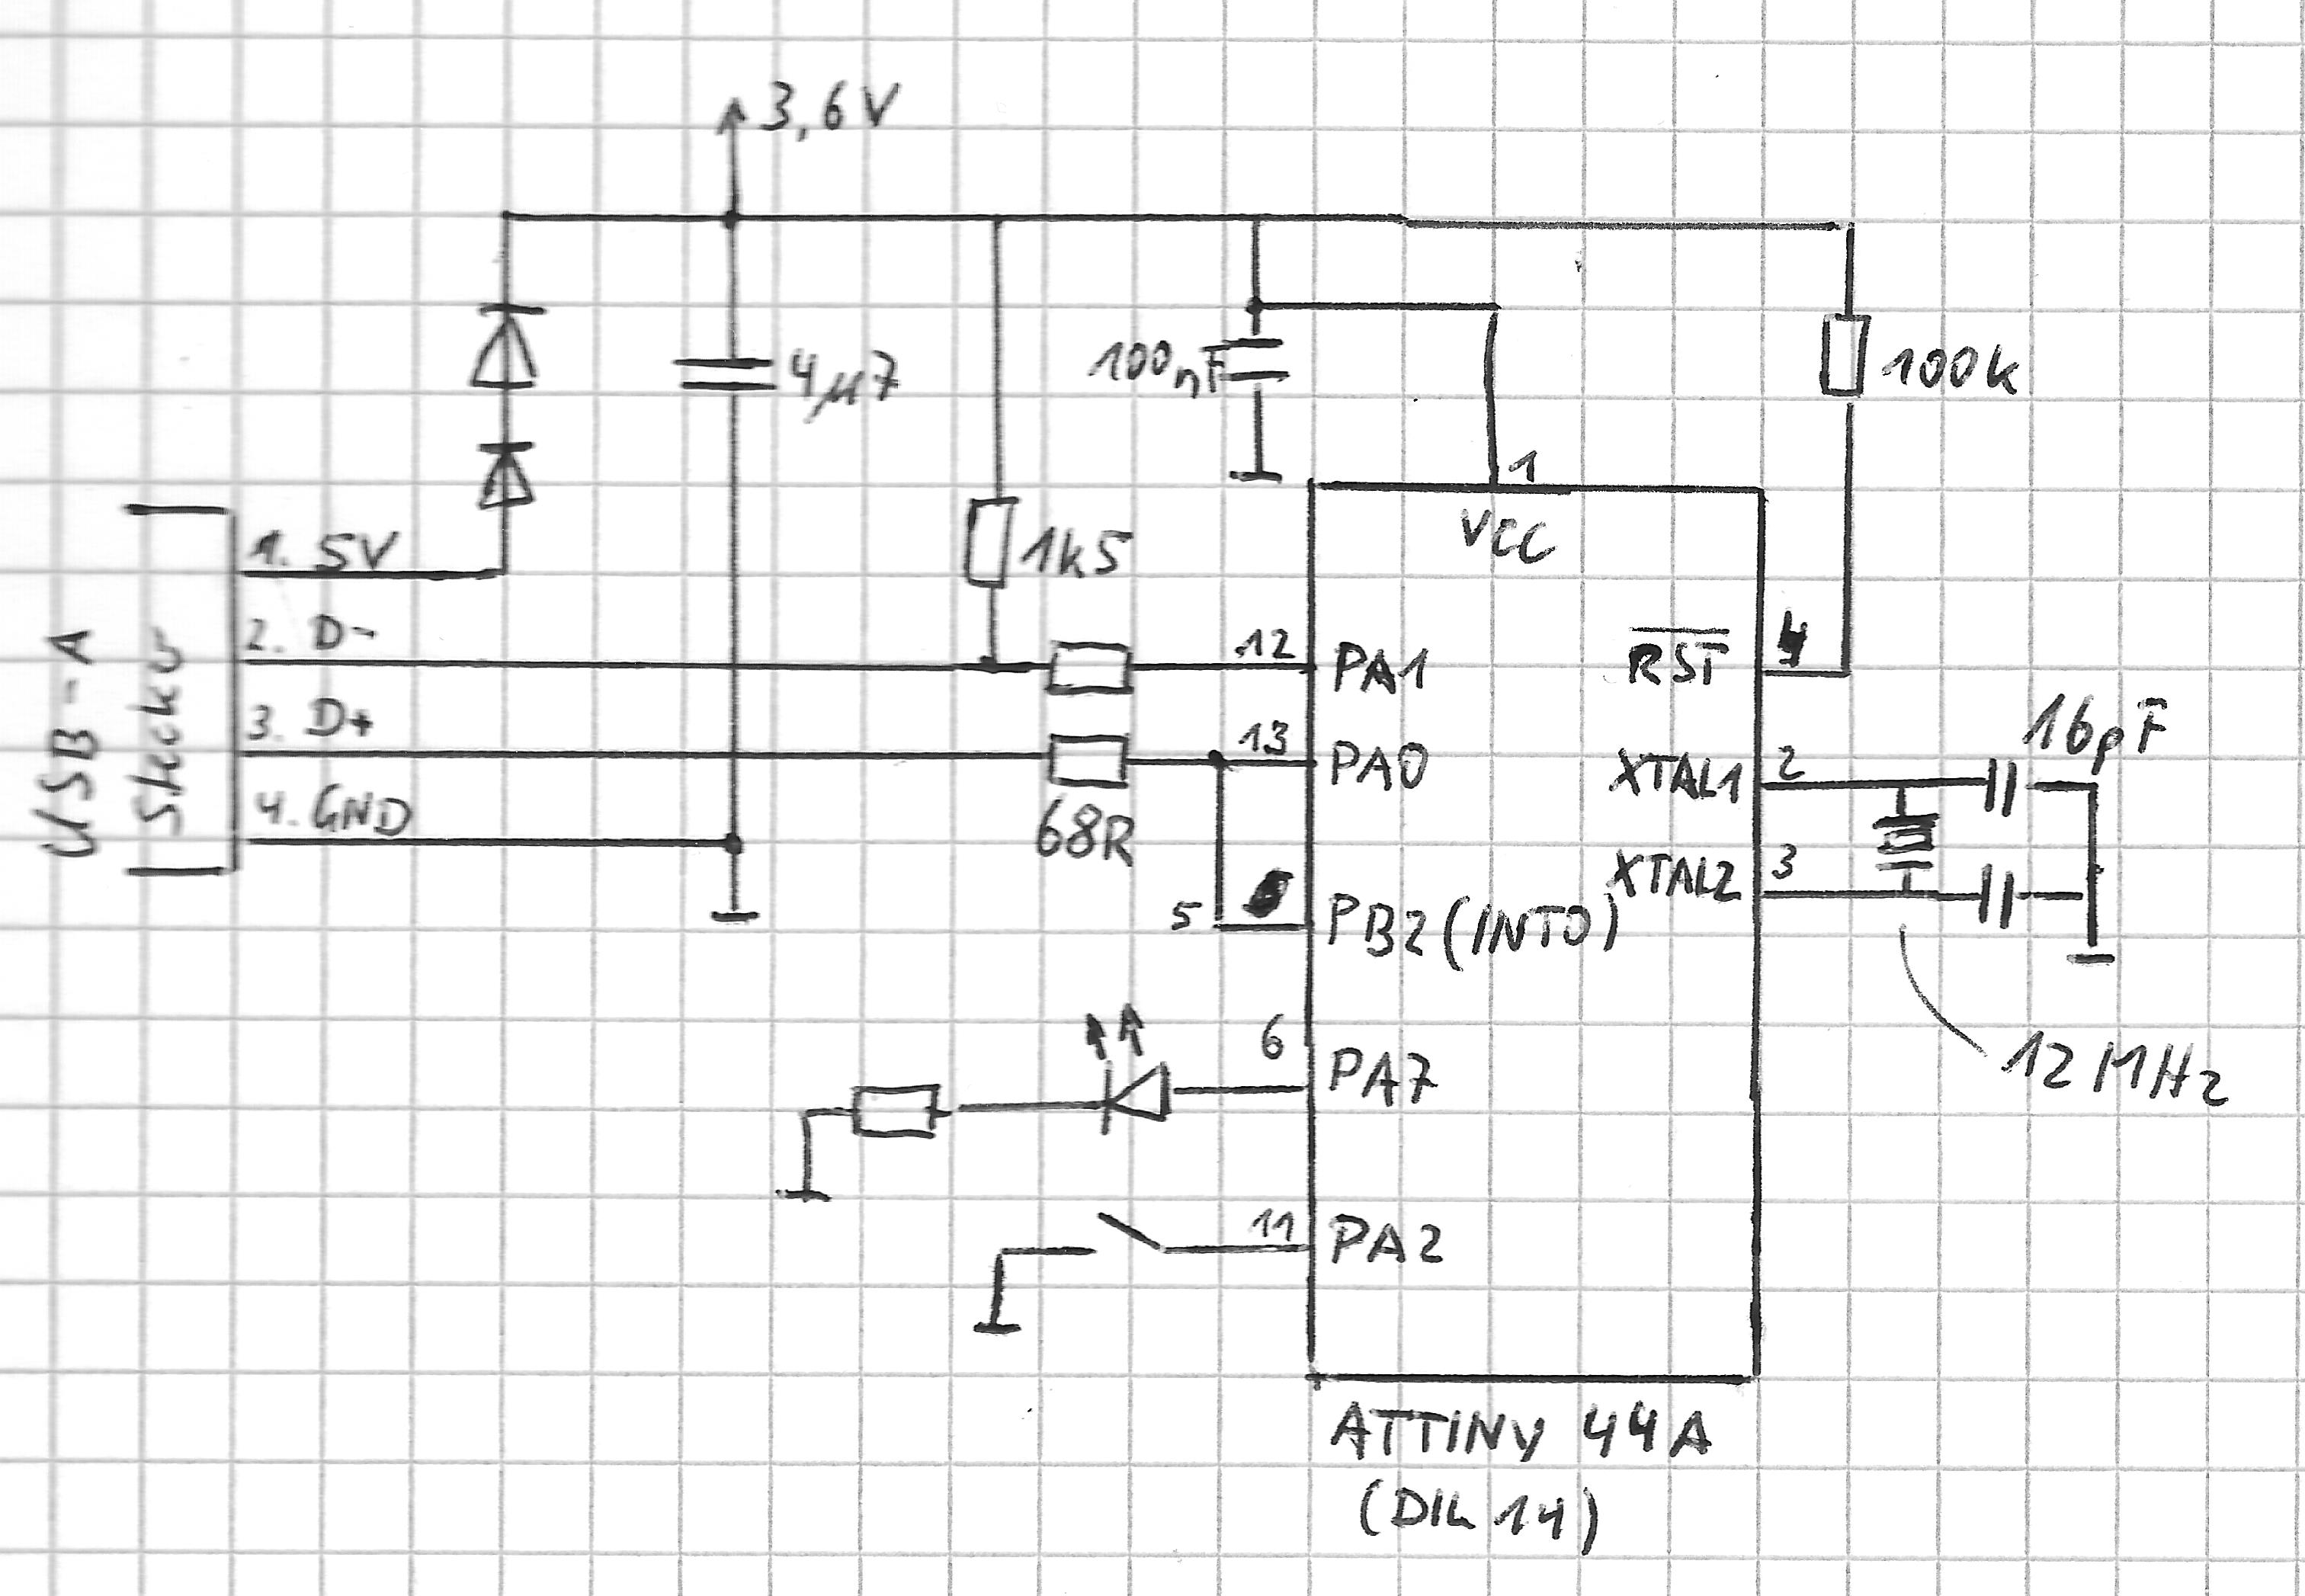 3,6V
4µ7
100nF
100k
1k5
1
VCC
USB-A
Stecker
1. 5V
2. D-
3. D+
4. GND
68R
12
PA1
13
PA0
5
PB2 (INT0)
6
PA7
11
PA2
RST
4
XTAL1
2
XTAL2
3
16pF
12MHz
ATTINY 44A
(DIL 14)